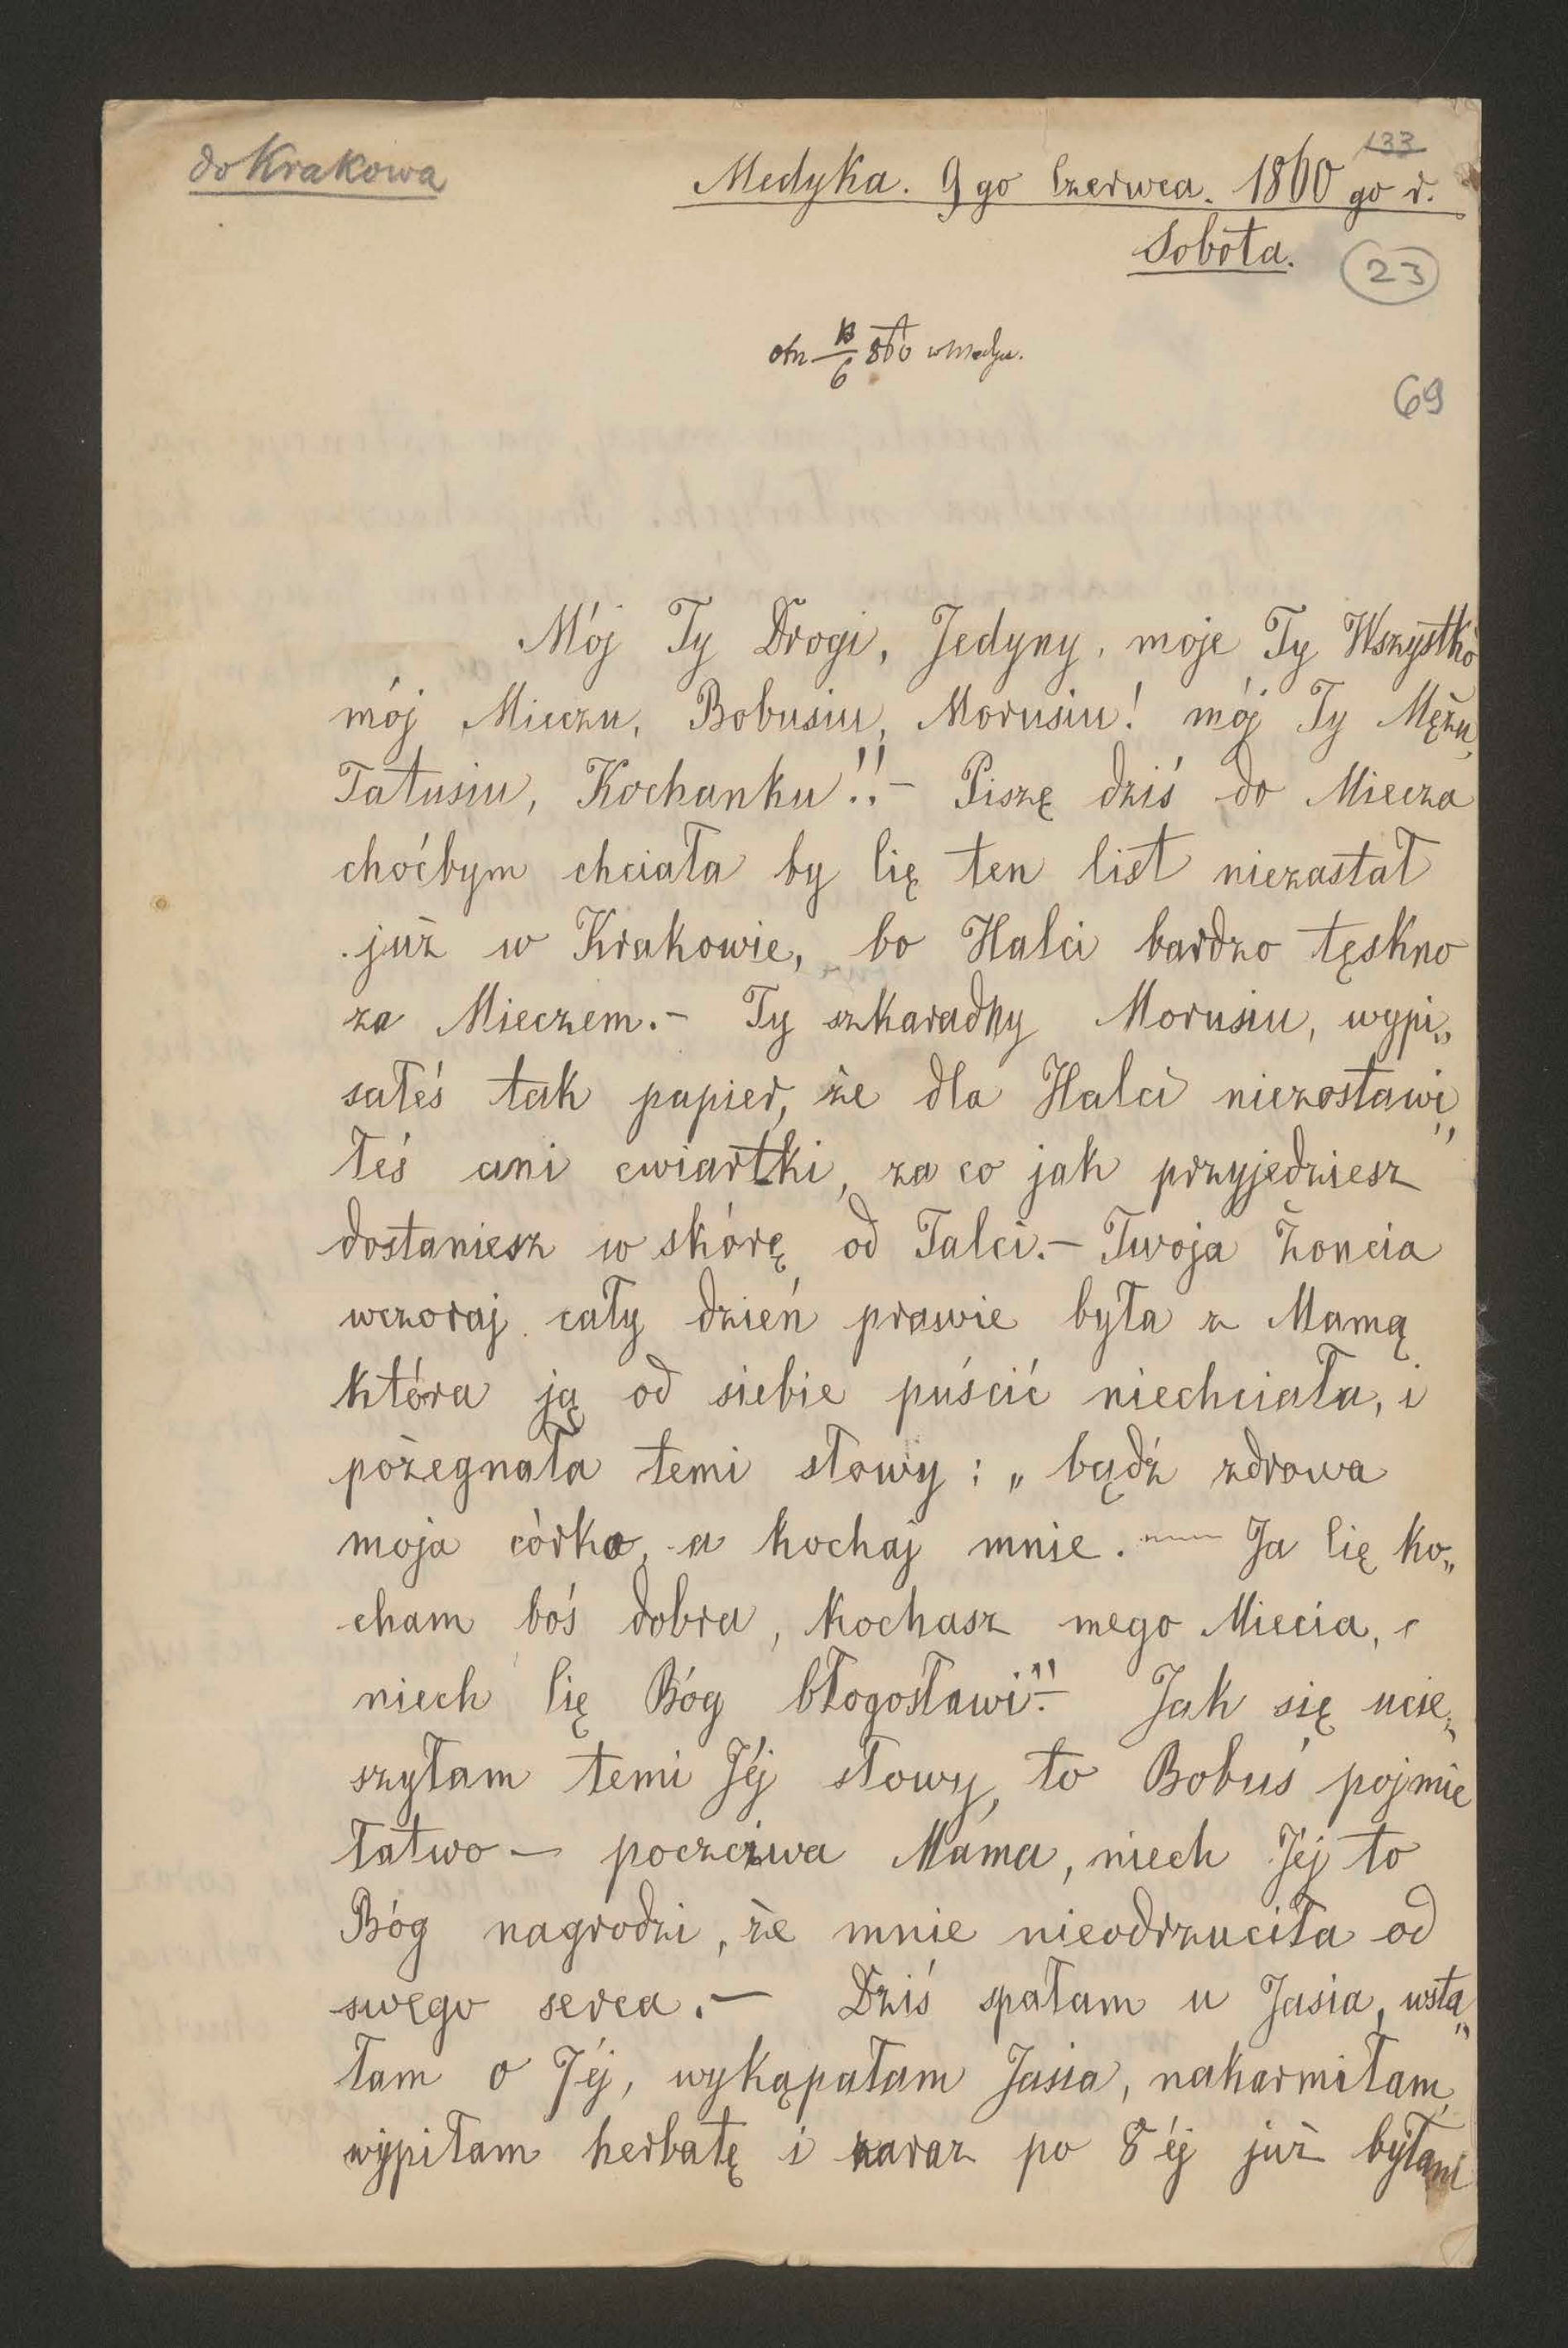 do Krakowa
133
Medyka. 9go Czerwca. 1860 go r.
Sobota.
23
otr 13/6 860 w Medyce.
69
Mój Ty Drogi, Jedyny, moje Ty Wszystko
mój Mieczu, Bobusiu, Morusiu! mój Ty Mężu,
Tatusiu, Kochanku!!- Piszę dziś do Miecza
choćbym chciała by Cię ten list niezastał
już w Krakowie, bo Halci bardzo tęskno
za Mieczem.- Ty szkaradny Morusiu, wypi„
sałeś tak papier, że dla Halci niezostawi„
łeś ani cwiartki, za co jak przyjedziesz
dostaniesz w skórę od Talci.- Twoja Żoncia
wczoraj cały dzień prawie była z Mamą
która ją od siebie puścić niechciała, i
pożegnała temi słowy: „bądź zdrowa
moja córko, a kochaj mnie. — Ja Cię ko„
cham boś dobra, kochasz mego Miecia,
niech Cię Bóg błogosławi".- Jak się ucie„
szyłam temi Jéj słowy, to Bobuś pojmie
łatwo - poczciwa Mama, niech Jéj to
Bóg nagrodzi, że mnie nieodrzuciła od
swego serca.- Dziś spałam u Jasia, wsta„
łam o 7éj, wykąpałam Jasia, nakarmiłam,
wypiłam herbatę i zaraz po 8éj już byłam